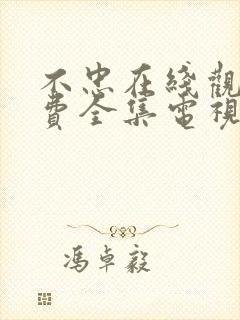 不忠在綫觀
費全集電視
馮卓毅